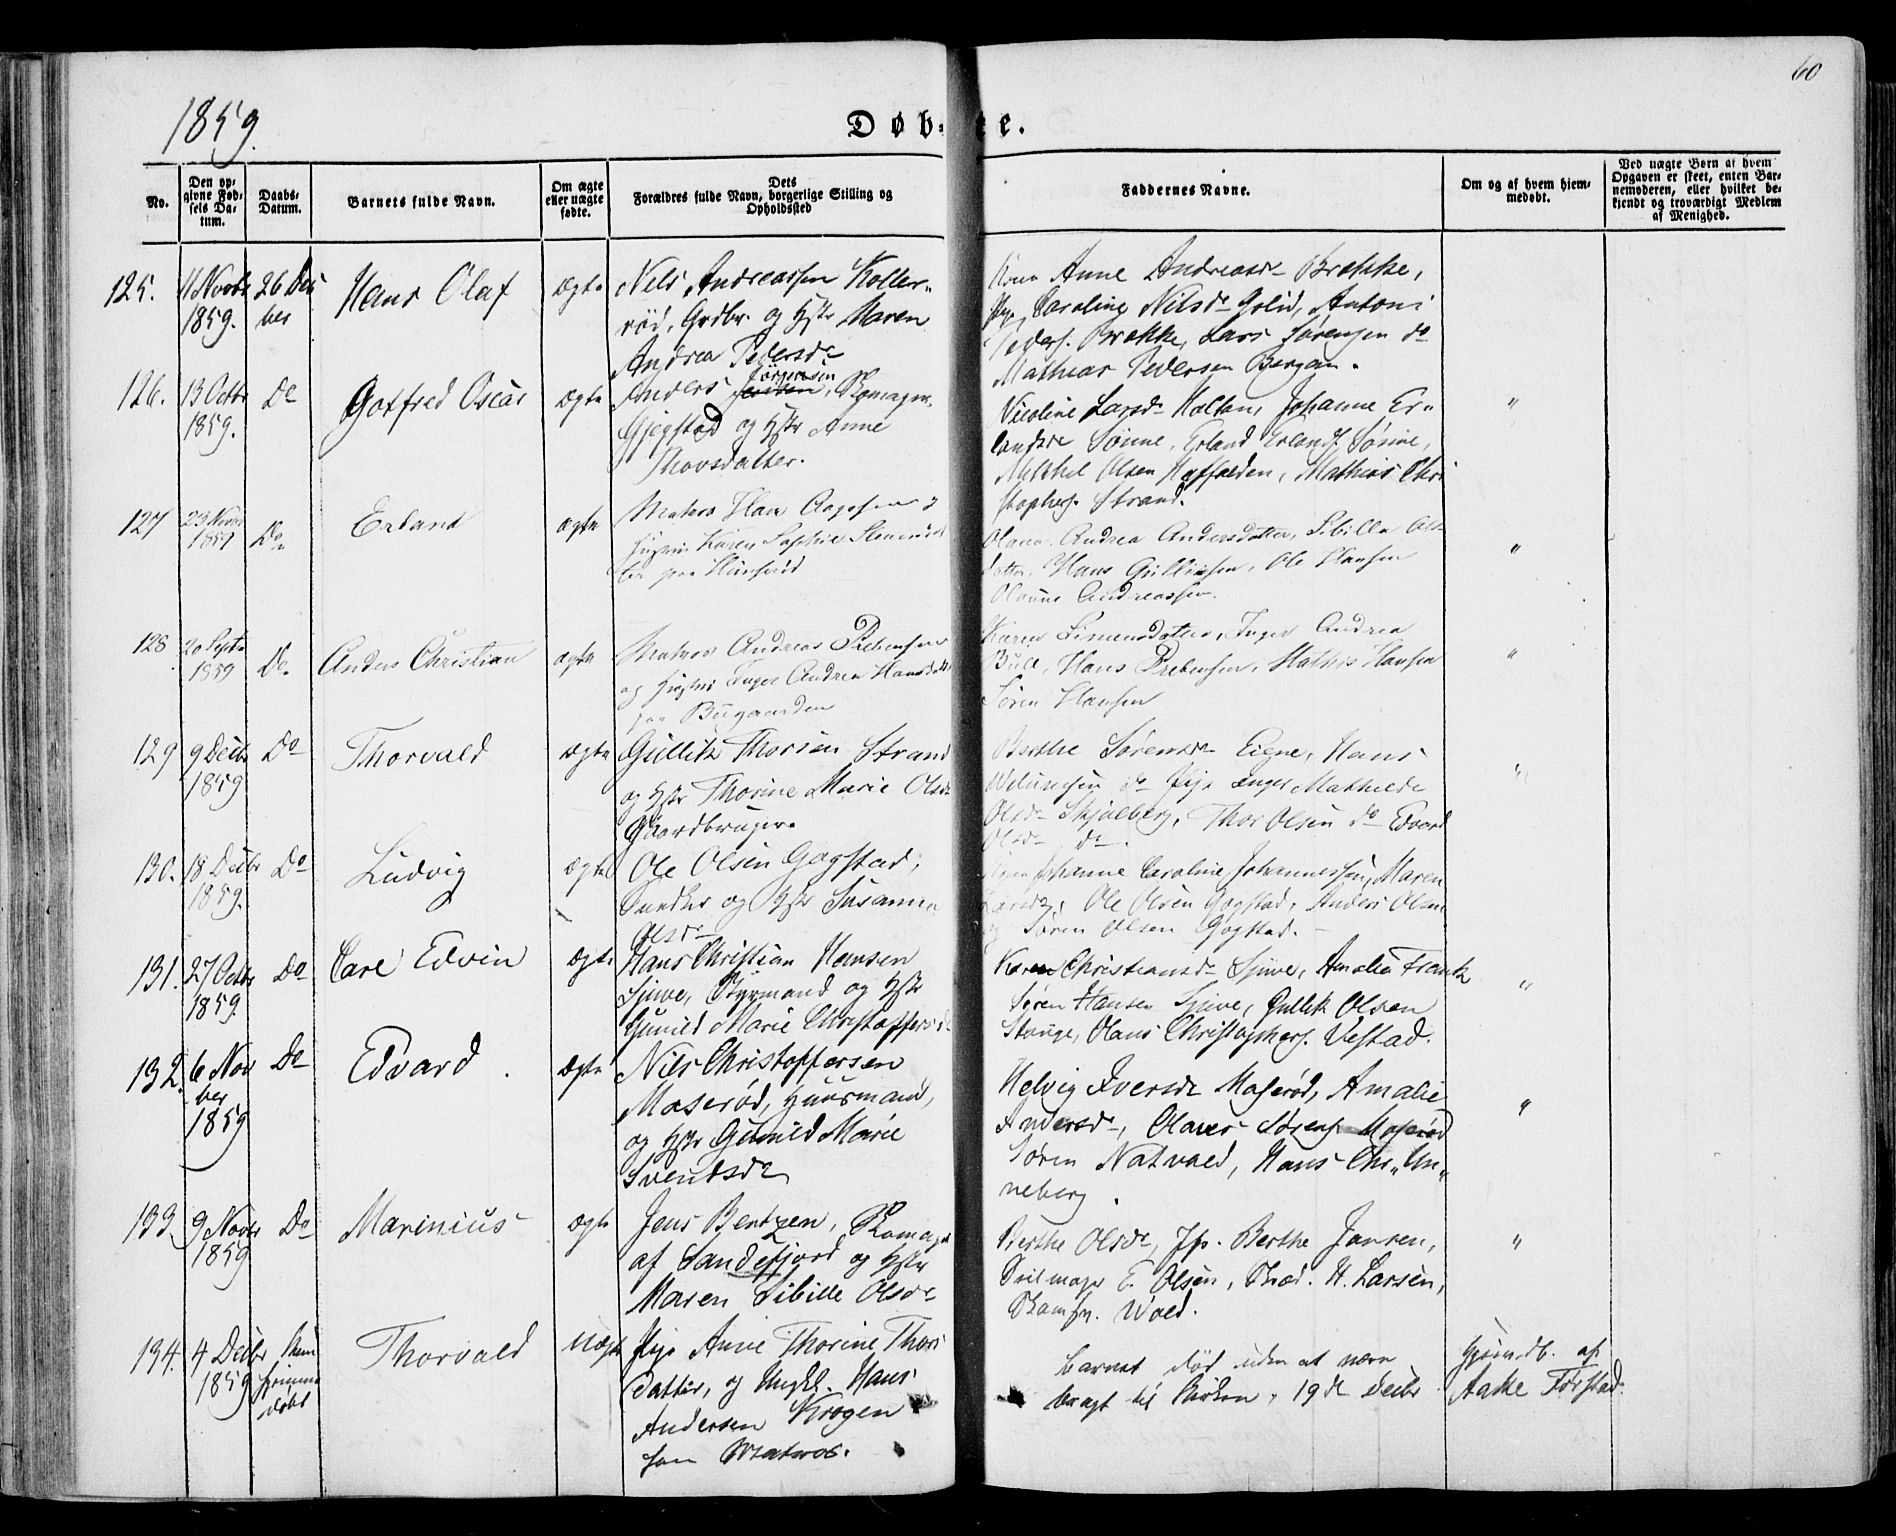 60
1859.
Døb- e.
No.
Den opgivne Fødsels Datum.
Daabs-Datum.
Barnets fulde Navn.
Om ægte eller uægte fødte.
Dets Forældres fulde Navn, borgerlige Stilling og Opholdssted
Faddernes Navne.
Om og af hvem hjemmedøbt.
Ved uægte Børn af hvem Opgaven er skeet, enten Barnemoderen, eller hvilket bekjendt og troværdigt Medlem af Menighed.
125. 11 Novbr 1859. 26 Decber Hans Olaf ægte
Nils Andreassen Koller-
rød, Grdbr. og Hstr Maren
Andrea Pedersdr
Kone Anne Andreasdr Brekke,
Caroline Nilsdr Golid, Antoni
Peders. Brekke, Lars Sørensen do
Mathias Pedersen Bergan.
126. 13 Octbr 1859. Do Gotfred Oscar ægte
Anders Jörgensen
Gjegstad og Hstr Anne
Thovsdatter.
Nicoline Larsdr Holtan, Johanne Er-
landsdr Sønne, Erland Erlands. Sønne,
Michel Olsen Haffalden, Mathias Chri
stophers. Strand. "
127 23 Novbr 1859 Do. Erland ægte
Matros Hans Aagesen og
Hustru Karen Sophie Simensdat
ter paa
Olava Andrea Andersdatter, Sibilla Ols
datter, Hans Gulliksen, Ole Hansen
Olaus Andreassen. "
128 20 Septbr 1859 Do. Anders Christian ægte
Matros Andreas Prebensen
og Hustru Inger Andrea Hansdatter
paa Bugaarden
Karen Simensdatter, Inger Andrea
Bull, Hans Prebensen, Mathis Hansen
Søren Hansen "
129 9 Decbr 1859 Do Thorvald ægte
Gullik Thorsen Strand
og Hstr Thorine Marie Olsdr
Gaardbruger.
Berthe Sørensdr Eigne, Hans
do Pige Inger Mathilde
Olsdr Skjelberg, Thor Olsen do Edvard
Olsdr do.
"
130. 18 Decbr 1859. Do Ludvig ægte
Ole Olsen Gogstad,
Snedker og Hstr Susanna
Olsdr
Johanne Caroline Johannessen, Maren
Larsdr, Ole Olsen Gogstad, Anders Olsen
og Søren Olsen Gogstad. -
131. 27 Octbr 1859. Do Carl Edvin ægte
Hans Christian Hansen
Sjuve, Styrmand og Hstr
Gunild Marie Christoffersdr
Karen Christiansdr Sjuve, Amalia Frantz
Søren Hansen Sjuve, Gullik Olsen
Stange, Olaus Christophers. Vestad. "
132. 6 November 1859 Do Edvard. ægte
Nils Christoffersen
Moserød, Huusmand,
og Hstr Gunild Marie
Svendsdr
Helvig Iversdr Moserød, Amalie
Andersdr, Olaves Sørens. Moserød
Søren Natvald, Hans Chr. Un-
neberg. "
133. 9 Novbr 1859 Do Marinius ægte
Jens Bentzen,
af Sandefjord og Hstr
Maren Sibille Olsdr
Berthe Olsdr, Jfr. Berthe Jansen,
Seilmager E. Olsen, H. Larsen,
Wold. "
134. 4 Decbr 1859 hjemmedøbt Thorvald uægte
Pige Anne Thorine Thors
datter, og Ungkl. Hans
Andersen Krogen
som Matros.
barnet død uden at være
bragt til Kirken, 19de Decbr
hjemdb. af
Aake Forstad.